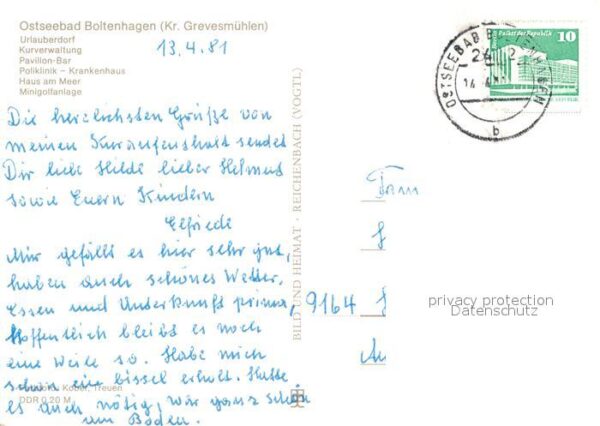 Ostseebad Boltenhagen (Kr. Grevesmühlen)
Urlauberdorf
Kurverwaltung
Pavillon-Bar
Poliklinik – Krankenhaus
Haus am Meer
Minigolfanlage
13.4.81
Die herzlichsten Grüße von
meinem Kuraufenthalt sendet
Dir liebe Hilde lieber Helmut
sowie Euern Kindern
Elfriede
Mir gefällt es hier sehr gut,
haben auch schönes Wetter.
Essen und Unterkunft prima,
Hoffentlich bleibt es noch
eine Weile so. Habe mich
schon ein bissel erholt. Hatte
es auch nötig, war ganz schön
am Boden.
Kober, Treuen
DDR 0,20 M
BILD UND HEIMAT · REICHENBACH (VOGTL)
Palast der Republik
10
OSTSEEBAD BOLTENHAGEN
b
Fam
9164
privacy protection
Datenschutz